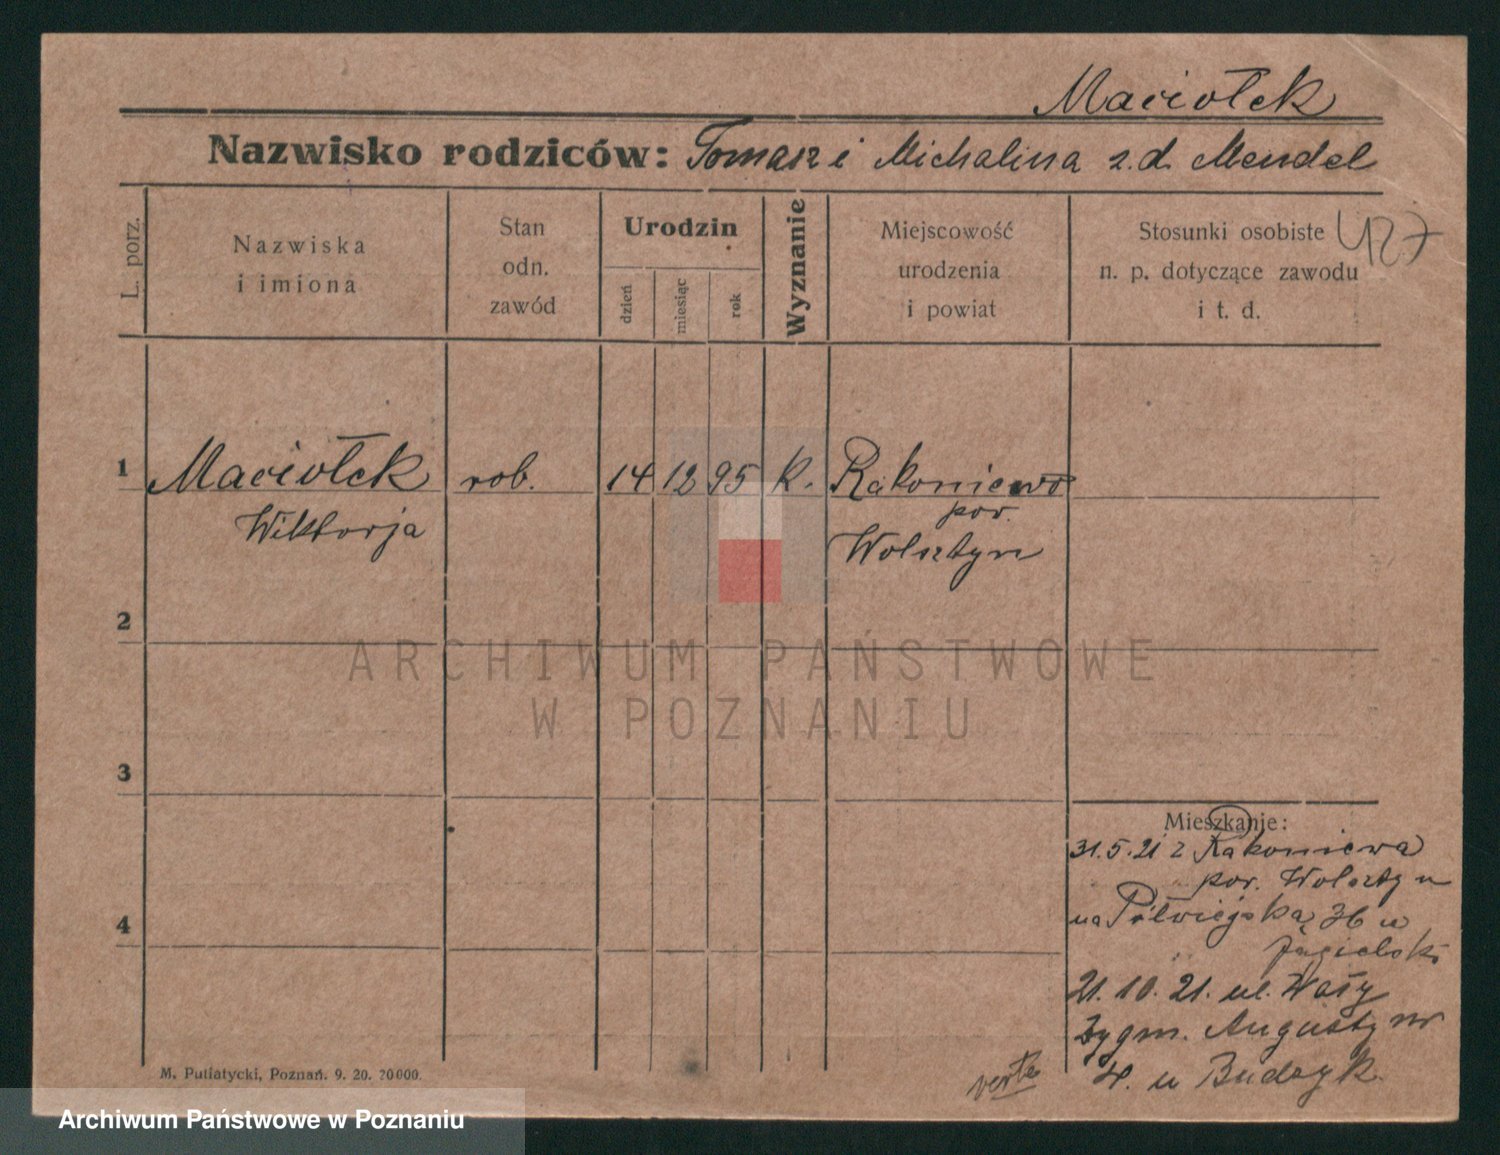 Maciołek
Nazwisko rodziców: Tomasz i Michalina z.d. Mendel
L. porz.
Nazwiska
i imiona
Stan
odn.
zawód
Urodzin
dzień
miesiąc
rok
Wyznanie
Miejscowość
urodzenia
i powiat
Stosunki osobiste
n. p. dotyczące zawodu
i t. d.
427
1 Maciołek rob. 14 12 95 K. Rakoniewo
pow.
Wiktorja Wolsztyn
2
ARCHIWUM PAŃSTWOWE
W POZNANIU
3
Mieszkanie:
31.5.21 z Rakoniewa
pow. Wolsztyn
4
na Półwiejską 36 u
Jagielski
21.10.21. ul. Wały
Zygm. Augusta nr
4. u Budzyk.
verte
M. Putiatycki, Poznań. 9. 20. 20000.
Archiwum Państwowe w Poznaniu